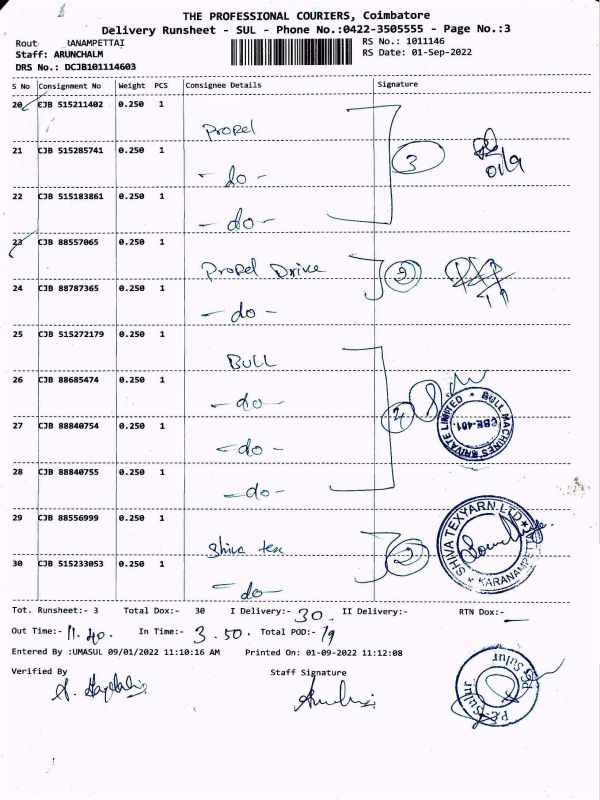 THE PROFESSIONAL COURIERS, Coimbatore
Delivery Runsheet - SUL - Phone No.:0422-3505555 - Page No.:3
Rout RANAMPETTAI
RS No.: 1011146
Staff: ARUNCHALM
RS Date: 01-Sep-2022
DRS No.: DCJB101114603
S No Consignment No Weight PCS Consignee Details Signature
20 CJB 515211402 0.250 1
Propel
21 CJB 515285741 0.250 1
- do -
3
01/9
22 CJB 515183861 0.250 1
- do -
23 CJB 88557065 0.250 1
Propel Drive
2
24 CJB 88787365 0.250 1
- do -
25 CJB 515272179 0.250 1
BULL
26 CJB 88685474 0.250 1
- do -
4
BULL MACHINES PRIVATE LIMITED
CBE-401.
27 CJB 88840754 0.250 1
- do -
28 CJB 88840755 0.250 1
- do -
29 CJB 88556999 0.250 1
Shiva tex
2
SHIVA TEXYARN LTD
30 CJB 515233053 0.250 1
- do -
Tot. Runsheet:- 3 Total Dox:- 30 I Delivery:- 30. II Delivery:- RTN Dox:- -
Out Time:- 11.40. In Time:- 3.50. Total POD:- 19
Entered By :UMASUL 09/01/2022 11:10:16 AM Printed On: 01-09-2022 11:12:08
Verified By Staff Signature
Sulur